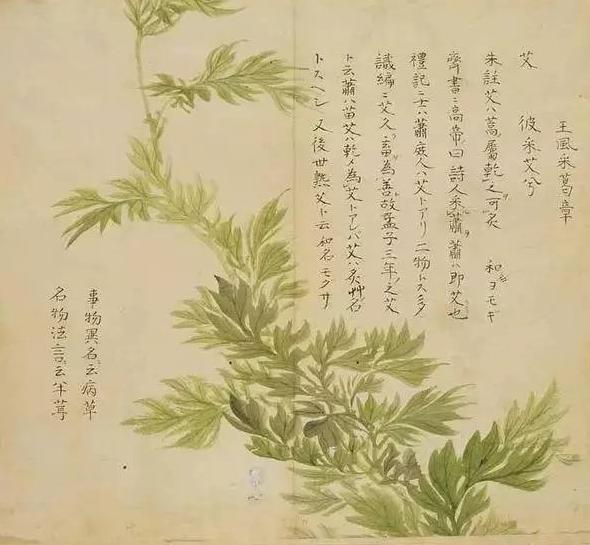 王風采葛章
艾 彼采艾兮
朱註艾ハ蒿屬乾之可灸 和名ヨモギ
齊書ニ高帝曰詩人采蕭蕭ハ即艾也
禮記ニ士ハ蕭庶人ハ艾トアリ二物トス
識編ニ艾久畜為善故孟子三年之艾
ト云蕭ハ苗艾ハ乾メ為艾トアレバ艾ハ灸艸名
トスヘシ 又後世熟艾ト云和名モクサ
事物異名ニ云病草
名物法言ニ云半